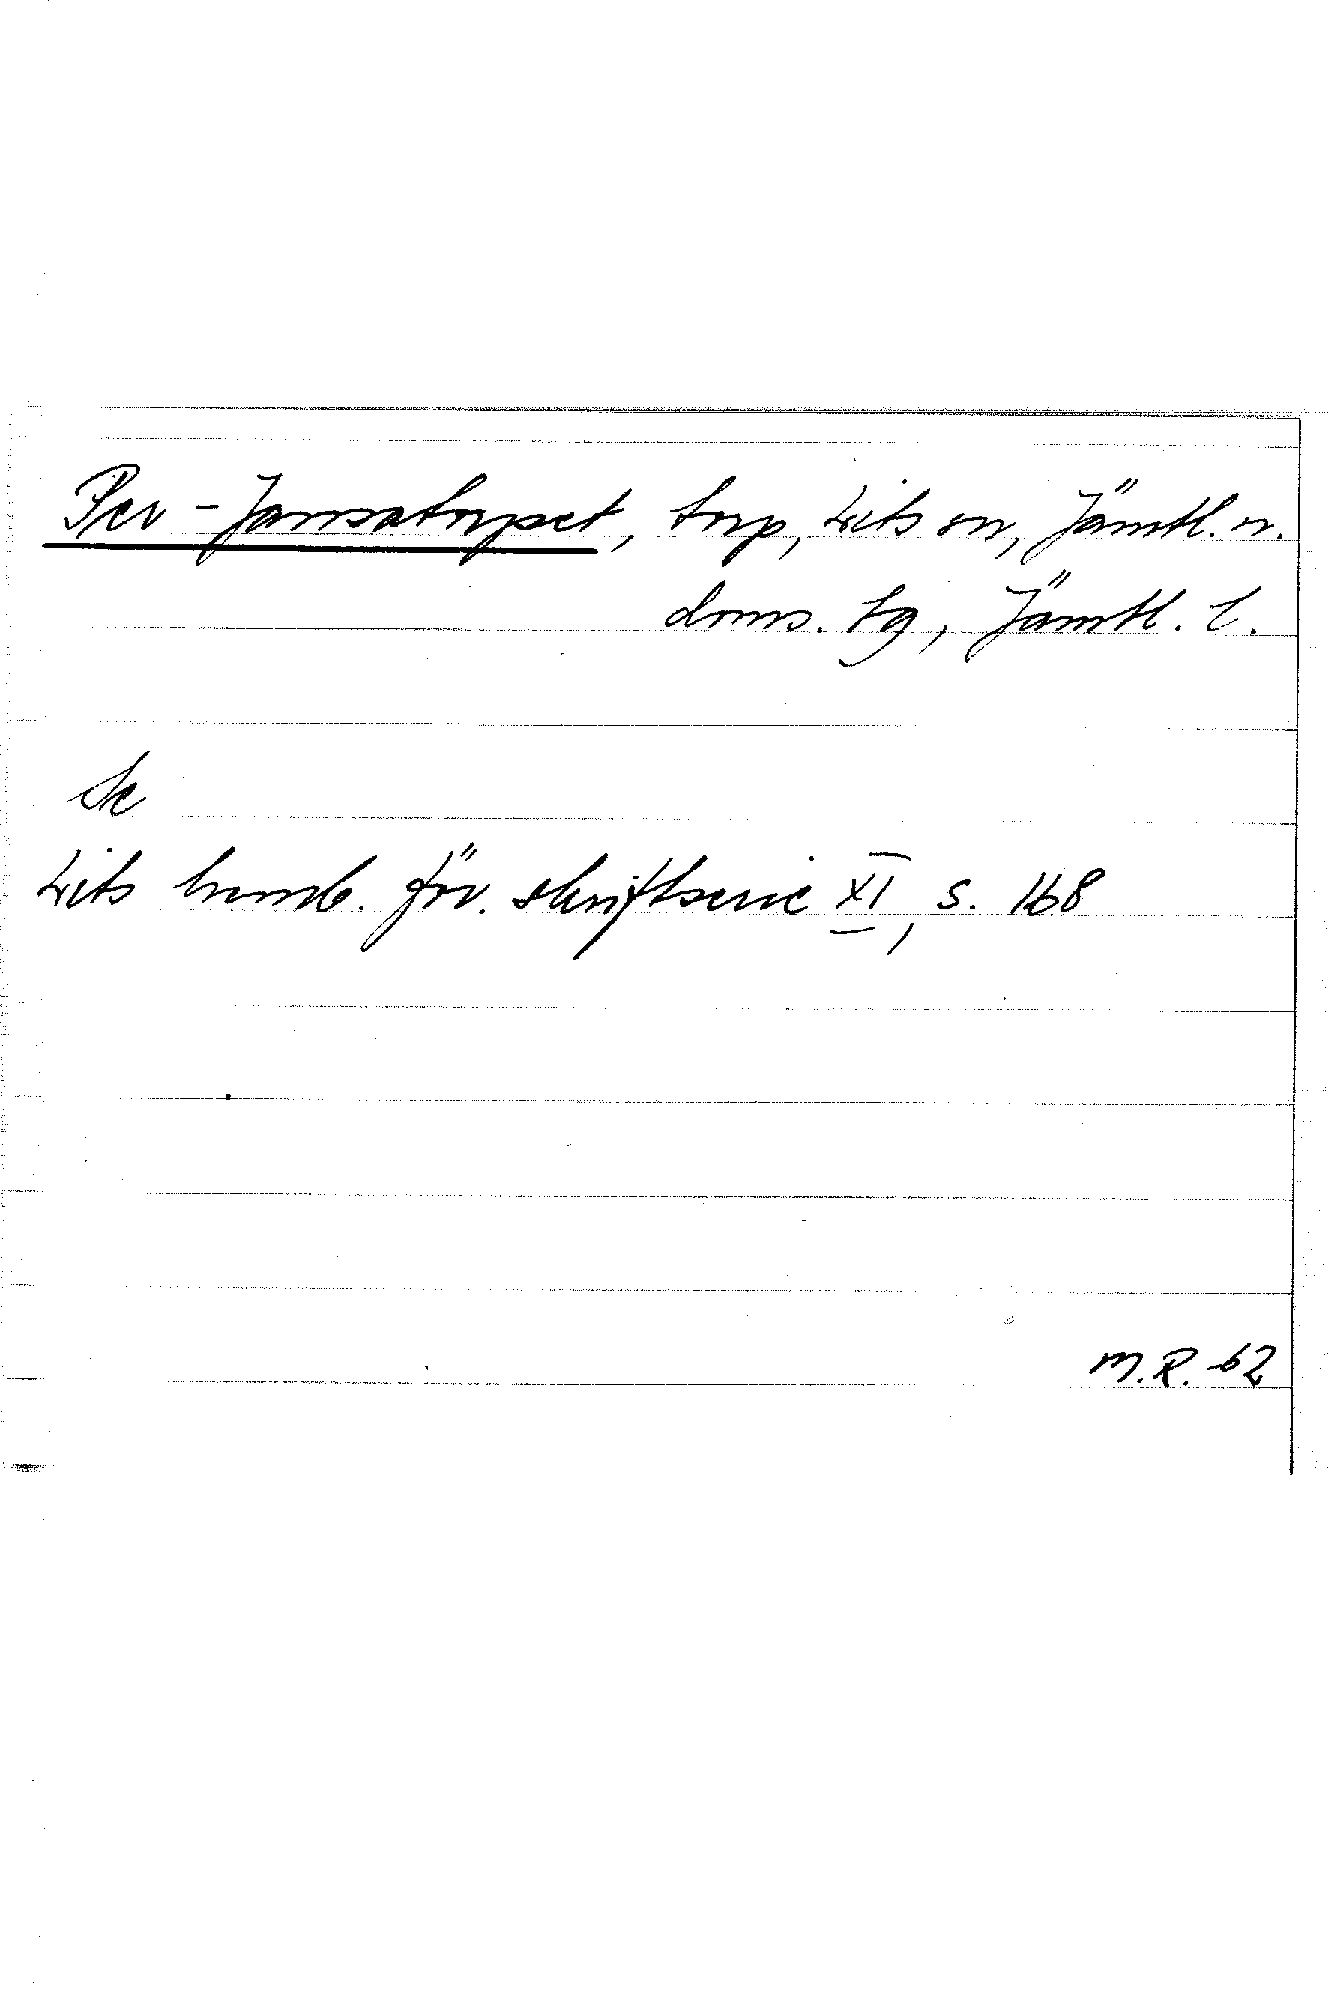 Per-Jansatorpet, torp, Lits sn, Jämtl. n.
doms. tg, Jämtl. l.
Se
Lits hemb. för. skriftserie XI, s. 168
M.R. -62